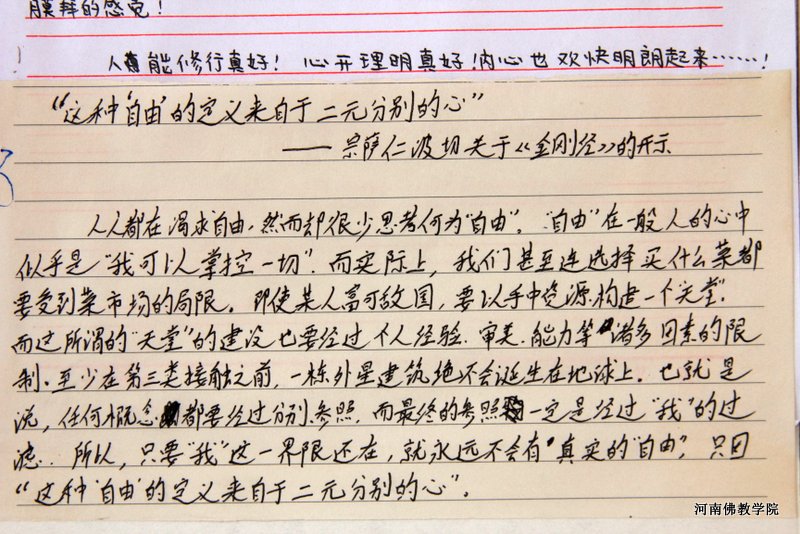 膜拜的感觉！
人能修行真好！心开理明真好！内心也欢快明朗起来……！
“这种‘自由’的定义来自于二元分别的心”
——宗萨仁波切关于《金刚经》的开示
人人都在渴求自由，然而却很少思考何为“自由”。“自由”在一般人的心中
似乎是“我可以掌控一切”。而实际上，我们甚至连选择买什么菜都
要受到菜市场的局限。即使某人富可敌国，要以手中资源构造一个“天堂”，
而这所谓的“天堂”的建设也要经过个人经验、审美、能力等诸多因素的限
制。至少在第三类接触之前，一栋外星建筑绝不会诞生在地球上。也就是
说，任何概念都要经过分别、参照，而最终的参照一定是经过“我”的过
滤。所以，只要“我”这一界限还在，就永远不会有真实的“自由”，只因
“这种‘自由’的定义来自于二元分别的心”。
河南佛教学院